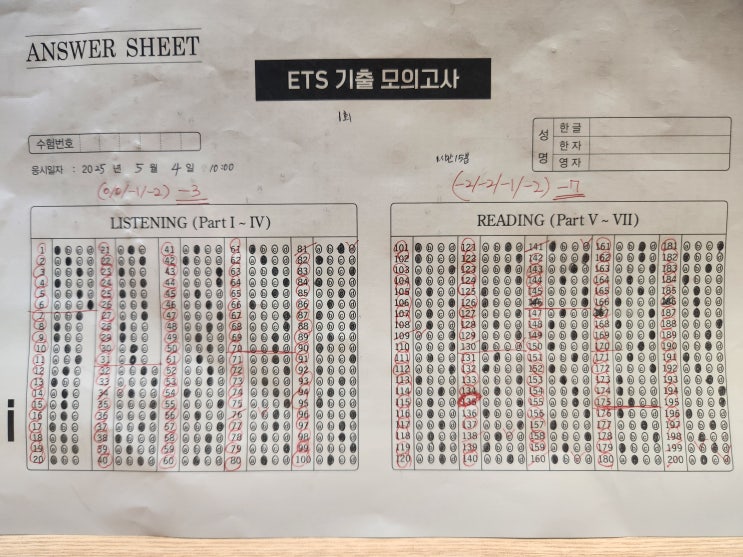 ANSWER SHEET
ETS 기출 모의고사
1회
수험번호
응시일자 : 2025 년 5 월 4 일 10:00
성명
한글
한자
영자
1시간 15분
(0/0/-1/-2) -3
(-2/-2/-1/-2) -7
LISTENING (Part I ~ IV)
1 21 41 61 81
2 22 42 62 82
3 23 43 63 83
4 24 44 64 84
5 25 45 65 85
6 26 46 66 86
7 27 47 67 87
8 28 48 68 88
9 29 49 69 89
10 30 50 70 90
11 31 51 71 91
12 32 52 72 92
13 33 53 73 93
14 34 54 74 94
15 35 55 75 95
16 36 56 76 96
17 37 57 77 97
18 38 58 78 98
19 39 59 79 99
20 40 60 80 100
READING (Part V ~ VII)
101 121 141 161 181
102 122 142 162 182
103 123 143 163 183
104 124 144 164 184
105 125 145 165 185
106 126 146 166 186
107 127 147 167 187
108 128 148 168 188
109 129 149 169 189
110 130 150 170 190
111 131 151 171 191
112 132 152 172 192
113 133 153 173 193
114 134 154 174 194
115 135 155 175 195
116 136 156 176 196
117 137 157 177 197
118 138 158 178 198
119 139 159 179 199
120 140 160 180 200